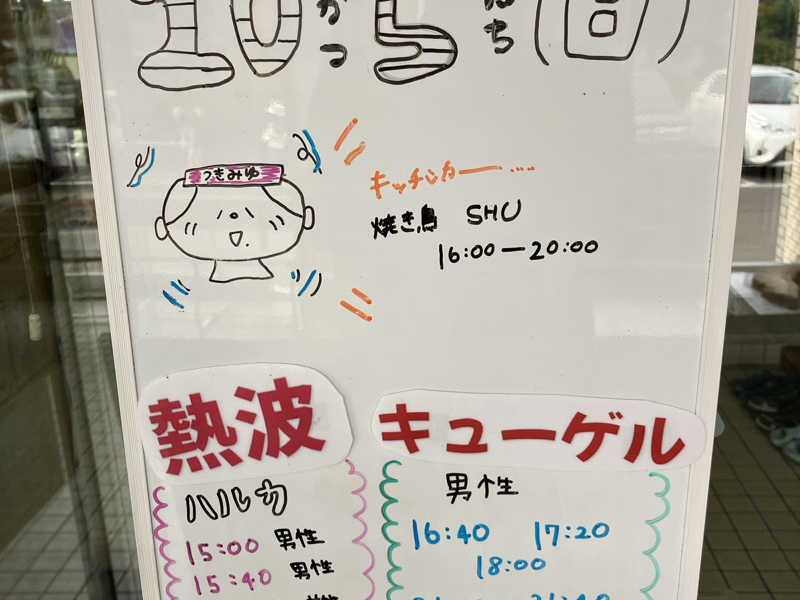 10がつ5にち(日)
つきみゆ
キッチンカー……
焼き鳥 SHU
16:00ー20:00
熱波
ハルカ
15:00 男性
15:40 男性
キューゲル
男性
16:40 17:20
18:00